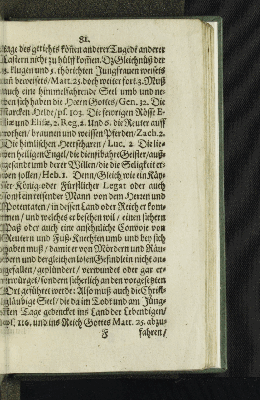 81.
Tage des gerichts können anderer Tugēdt anderer
Lastern nicht zu hülff kommen. DZ Gleichnüß der
5. klugen und 5. thörichten Jungfrauen weisets
und beweisets / Matt. 25. doch weiter fort. 3. Muß
auch eine himmelfahrende Seel umb und ne-
ben sich haben die Heere Gottes / Gen. 32. Die
starcken Helde / ps. 103. Die feurigen Rosse E-
liæ und Elisæ, 2. Reg. 2. Und 6. die Reuter auff
rothen / braunen und weissen Pferden / Zach. 2.
Die himlischen Heerscharen / Luc. 2 Die lie-
ben heiligen Engel / die dienstbahre Geister / auß-
gesandt umb derer Willen / die die Seligkeit er-
ben sollen / Heb. 1. Denn / Gleich wie ein Käy-
ser König oder Fürstlicher Legat oder auch
sonst ein reisender Mann von den Herren und
Potentaten / in dessen Land oder Reich er kom-
men / und welches er besehen wil / einen sichern
Paß oder auch eine ansehnliche Convoie von
Reutern und Fuß-Knechten umb und bey sich
haben muß / damit er von Mördern und Räu-
bern und dergleichen losen Gesindlein nicht an-
gefallen / geplündert / verwundet oder gar er-
würget / sondern sicherlich an den vorgesetzten
Ort geführet werde: Also muß auch die Christ-
gläubige Seel / die da im Todt und am Jüng-
sten Tage gedencket ins Land der Lebendigen /
ps. 116. und ins Reich Gottes Matt. 25. abzu-
fahren /